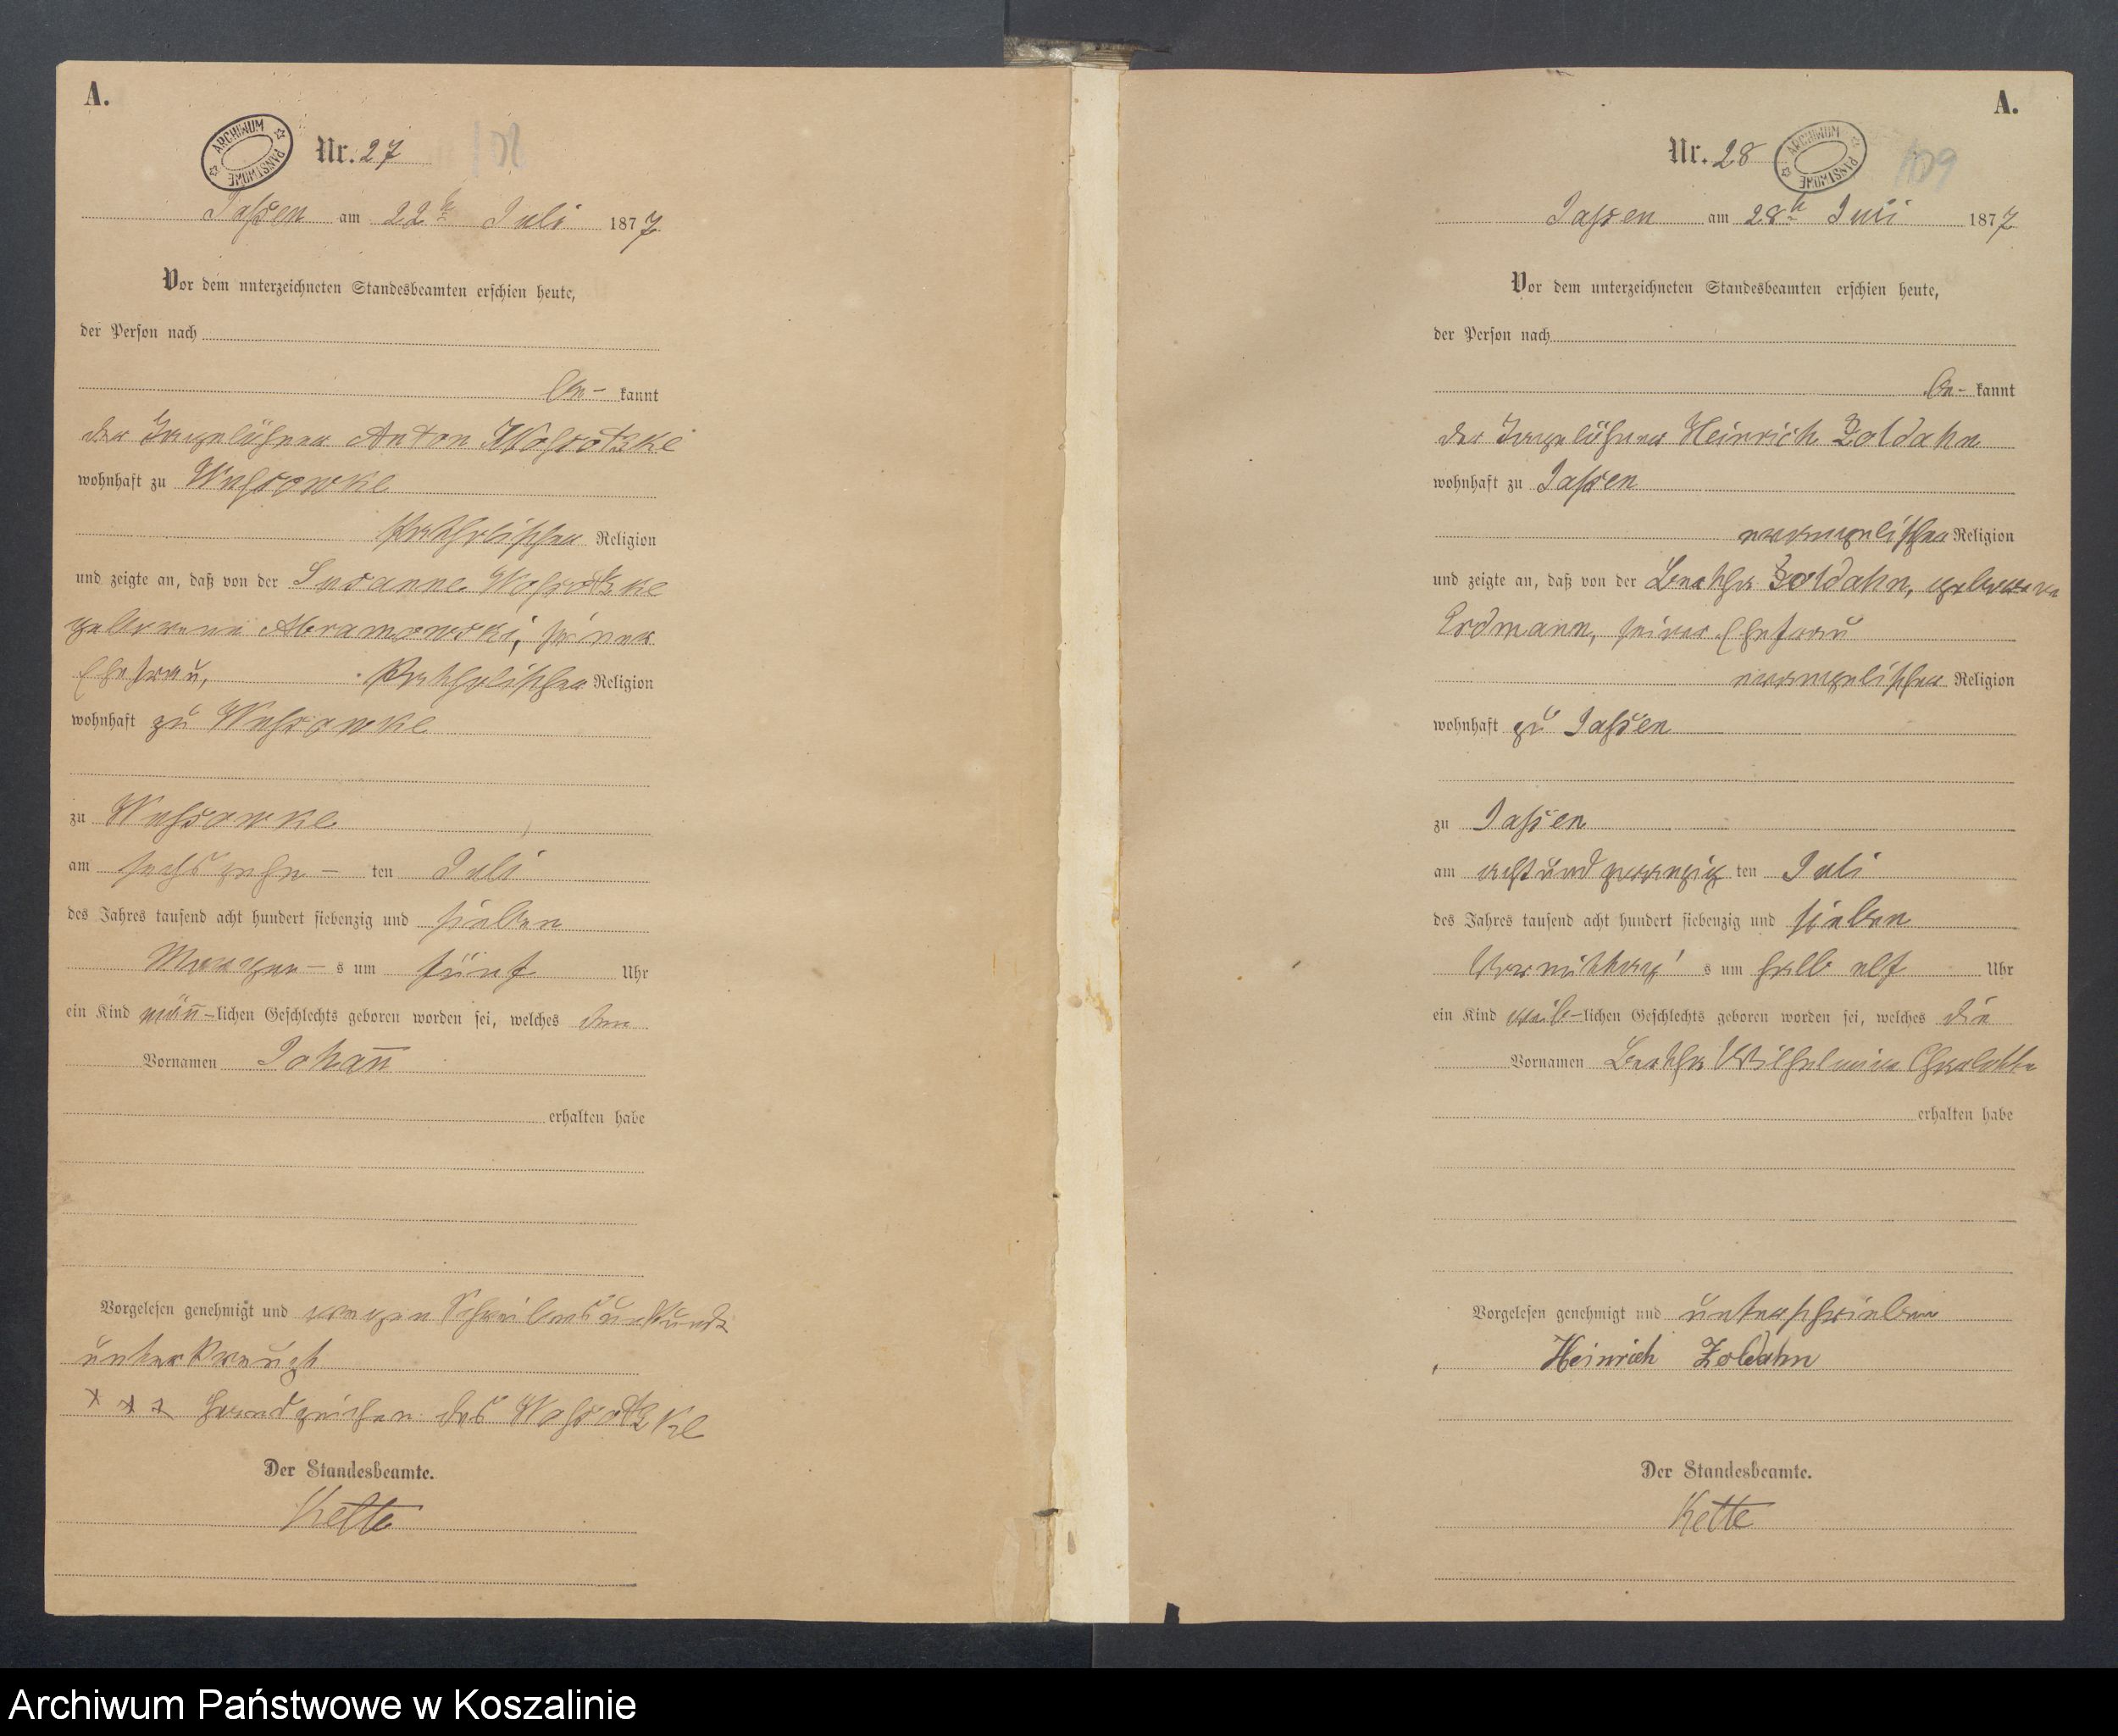 A.
ARCHIWUM PAŃSTWOWE
Nr. 27
108
Jassen am 22ᵗ Juli 1877
Vor dem unterzeichneten Standesbeamten erschien heute,
der Person nach
be- kannt
der Tagelöhner Anton
wohnhaft zu Wussowke
katholischer Religion
und zeigte an, daß von der Susanne
geborene Abramowski, seiner
Ehefrau, katholischer Religion
wohnhaft zu Wussowke
zu Wussowke
am sechszehn- ten Juli
des Jahres tausend acht hundert siebenzig und sieben
Morgen- s um fünf Uhr
ein Kind män̅-lichen Geschlechts geboren worden sei, welches den
Vornamen Johan̅
erhalten habe
Vorgelesen genehmigt und wegen Schreibensunkunde
unterkreuzt
x x x Handzeichen des
Der Standesbeamte.
Kette
A.
Nr. 28
ARCHIWUM PAŃSTWOWE
109
Jassen am 28ᵗ Juli 1877
Vor dem unterzeichneten Standesbeamten erschien heute,
der Person nach
be- kannt
der Tagelöhner Heinrich Zoldahn
wohnhaft zu Jassen
evangelischer Religion
und zeigte an, daß von der Bertha Zoldahn, geborene
Erdmann, seiner Ehefrau
evangelischer Religion
wohnhaft zu Jassen
zu Jassen
am achtundzwanzig ten Juli
des Jahres tausend acht hundert siebenzig und sieben
Vormittag s um halb elf Uhr
ein Kind weib-lichen Geschlechts geboren worden sei, welches die
Vornamen Bertha Wilhelmine Charlotte
erhalten habe
Vorgelesen genehmigt und unterschrieben
Heinrich Zoldahn
Der Standesbeamte.
Kette
Archiwum Państwowe w Koszalinie